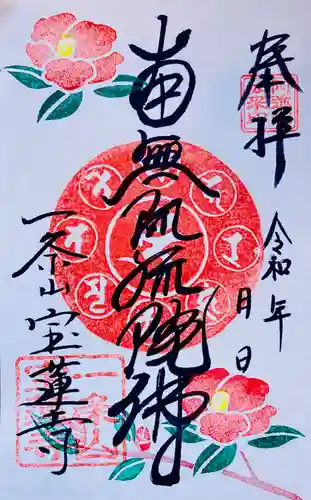 奉拝
令和 年 月 日
南無阿弥陀佛
一茶山 宝蓮寺